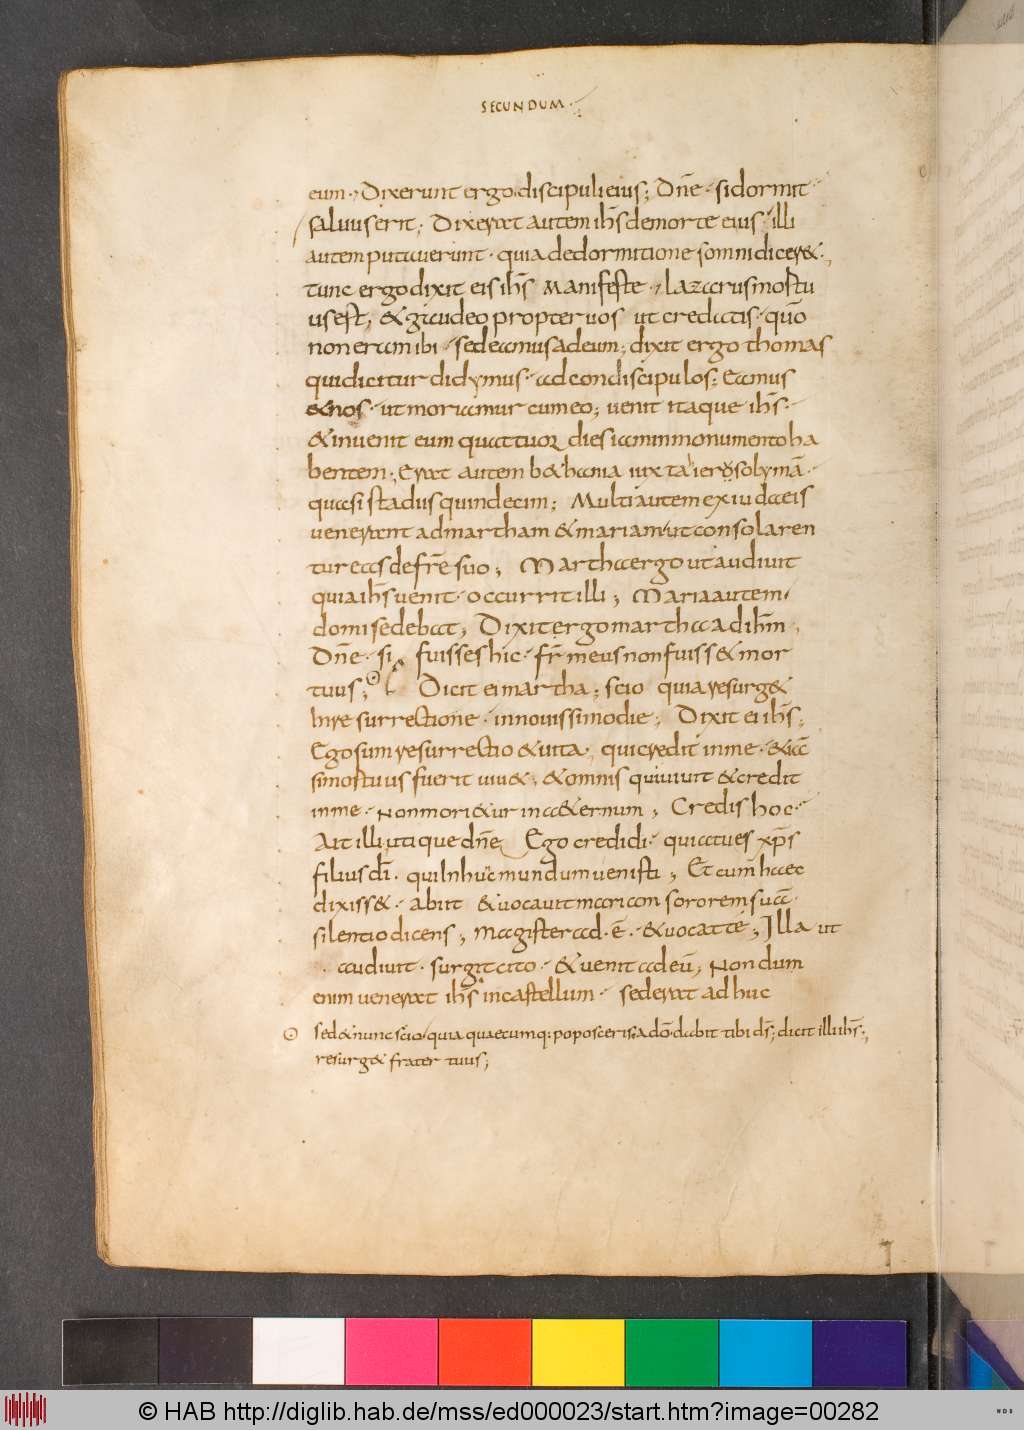 SECUNDUM
eum · Dixerunt ergo discipuli eius; Dn̄e · si dormit
saluus erit; Dixerat autem ih̄s de morte eius · illi
autem putauerunt · quia de dormitione somni dicer&;
tunc ergo dixit eis ih̄s manifeste · lazarus mostu
us est, & gaudeo propter uos ut credatis · quō
non eram ibi · sed eamus ad eum; dixit ergo thomas
qui dicitur didymus · ad condiscipulos; Eamus
& nos · ut moriamur cum eo; uenit itaque ih̄s ·
& inuenit eum quattuor dies iam in monumento ha
bentem · Erat autem b&hania iuxta ierosolymā ·
quasi stadiis quindecim; Multi autem ex iudaeis
uenerant ad martham & mariam ut consolaren
tur eas de fr̄e suo; Martha ergo ut audiuit
quia ih̄s uenit · occurrit illi; Maria autem
domi sedebat; Dixit ergo martha ad ih̄m ·
Dn̄e · si fuisses hic · fr̄ meus non fuiss& mor
tuus; Dicit ei martha; scio quia resurg&
In resurrectione · in nouissimo die; Dixit ei ih̄s;
Ego sum resurrectio & uita · qui credit in me · &iā
si mostuus fuerit uiu&; & omnis qui uiuit & credit
in me · Non mori&ur in a&ernum; Credis hoc ·
Ait illi utique dn̄e Ego credidi · quia tu es xp̄s
filius dī · qui In huc mundum uenisti; Et cum haec
dixiss& · abiit & uocauit mariam sororem suā ·
silentio dicens; magister ad · ē · & uocat te; Illa ut
audiuit · surgit cito · & uenit ad eū; Nondum
enim uenerat ih̄s in castellum · sed erat adhuc
sed & nunc scio quia quaecumq: poposceris a dō · dabit tibi ds̄; dicit illi ih̄s;
resurg& frater tuus;
© HAB http://diglib.hab.de/mss/ed000023/start.htm?image=00282